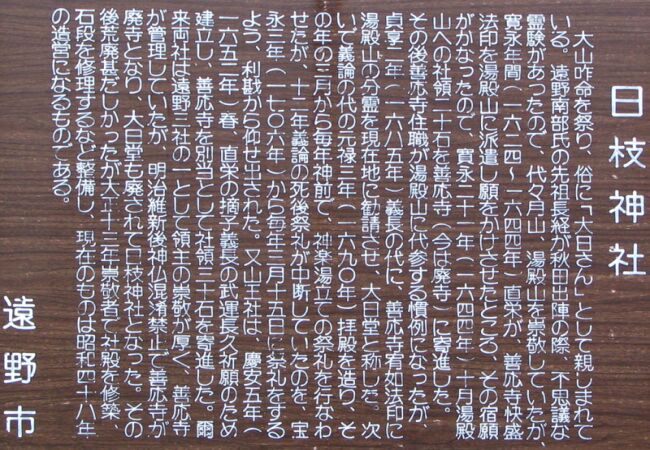 日枝神社
大山咋命を祭り、俗に「大日さん」として親しまれて
いる。遠野南部氏の先祖長経が秋田出陣の際、不思議な
霊験があったので、代々月山、湯殿山を崇敬していたが、
寛永年間(一六二四〜一六四四年)直栄が、善応寺快盛
法印を湯殿山に派遣し願をかけさせたところ、その宿願
がかなったので、寛永二十一年(一六四四年)十月湯殿
山への社領二十石を善応寺(今は廃寺)に寄進した。
その後善応寺住職が湯殿山に代参する慣例になったが、
貞享二年(一六八五年)義長の代に、善応寺宥如法印に
湯殿山の分霊を現在地に勧請させ、大日堂と称した。次
いで義論の代の元禄三年(一六九〇年)拝殿を造り、そ
の年の三月から毎年神前で、神楽湯立ての祭礼を行なわ
せたが、十二年義論の死後祭礼が中断していたのを、宝
永三年(一七〇六年)から毎年三月十五日に祭礼をする
よう、利戡から仰せ出された。又山王社は、慶安五年(
一六五二年)春、直栄の摘子義長の武運長久祈願のため
建立し、善応寺を別当として社領三十石を寄進した。爾
来両社は遠野三社の一として領主の崇敬が厚く、善応寺
が管理していたが、明治維新後神仏混淆禁止で善応寺が
廃寺となり、大日堂も廃されて日枝神社となった。その
後荒廃甚だしかったが大正十三年崇敬者で社殿を修築、
石段を修理するなど整備し、現在のものは昭和四十八年
の造営になるものである。
遠野市